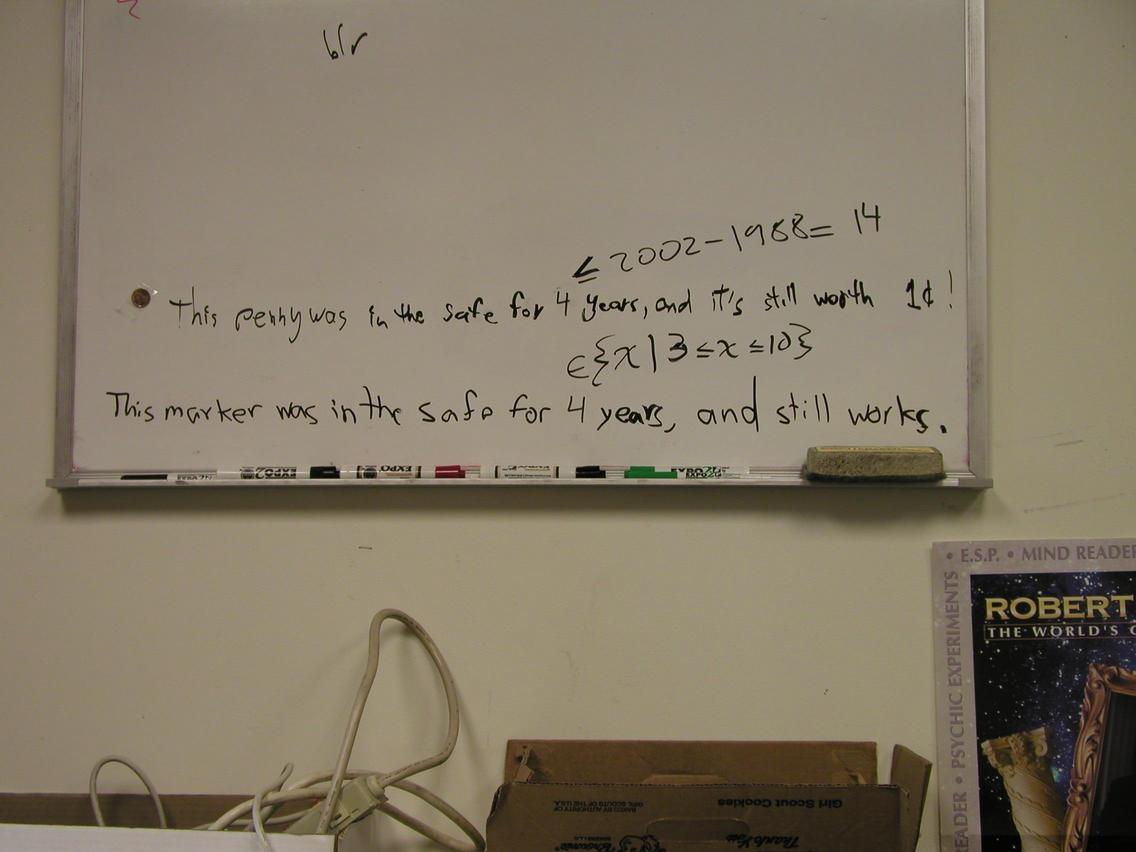 b/r
≤ 2002-1988= 14
This penny was in the safe for 4 years, and it's still worth 1¢!
∈{x | 3 ≤ x ≤ 10}
This marker was in the safe for 4 years, and still works.
EXPO
EXPO
• E.S.P. • MIND READER
ROBERT
THE WORLD'S
READER • PSYCHIC EXPERIMENTS
Girl Scout Cookies
BAKED BY AUTHORITY OF
GIRL SCOUTS OF THE U.S.A.
Thank You